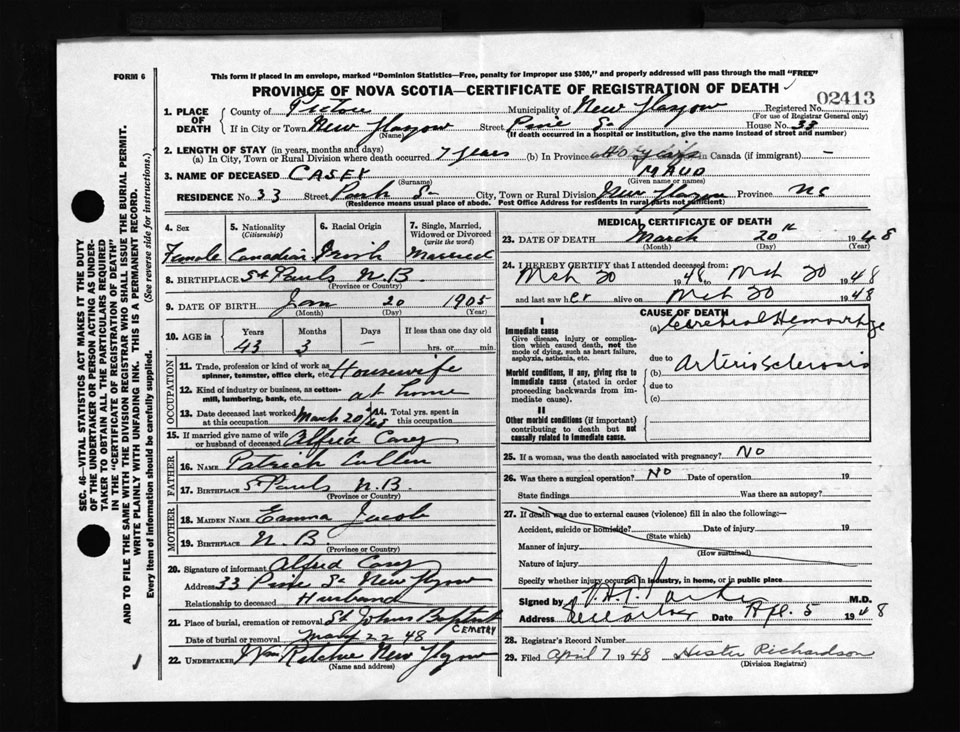 FORM 6
This form if placed in an envelope, marked "Dominion Statistics—Free, penalty for improper use $300," and properly addressed will pass through the mail "FREE"
PROVINCE OF NOVA SCOTIA—CERTIFICATE OF REGISTRATION OF DEATH
02413
1. PLACE OF DEATH
County of Pictou Municipality of New Glasgow Registered No.
(For use of Registrar General only)
If in City or Town New Glasgow Street House No. 33
(Name) (If death occurred in a hospital or institution, give the name instead of street and number)
2. LENGTH OF STAY (in years, months and days)
(a) In City, Town or Rural Division where death occurred 7 years (b) In Province in Canada (if immigrant) -
3. NAME OF DECEASED CASEY MAUD
(Surname) (Given name or names)
RESIDENCE No. 33 Street City, Town or Rural Division New Glasgow Province NS
(Residence means usual place of abode. Post Office Address for residents in rural parts not sufficient)
4. Sex
Female
5. Nationality
(Citizenship)
Canadian
6. Racial Origin
Irish
7. Single, Married, Widowed or Divorced
(write the word)
Married
8. BIRTHPLACE St Pauls N.B.
(Province or Country)
9. DATE OF BIRTH Jan 20 1905
(Month) (Day) (Year)
10. AGE in
Years Months Days If less than one day old
43 3 – hrs. or min.
OCCUPATION
11. Trade, profession or kind of work as spinner, teamster, office clerk, etc. Housewife
12. Kind of industry or business, as cotton-mill, lumbering, bank, etc. at home
13. Date deceased last worked at this occupation March 20/48
14. Total yrs. spent in this occupation
15. If married give name of wife or husband of deceased Alfred Casey
FATHER
16. NAME Patrick Cullen
17. BIRTHPLACE St Pauls N.B.
(Province or Country)
MOTHER
18. MAIDEN NAME Emma Jacob
19. BIRTHPLACE N.B.
(Province or Country)
20. Signature of informant Alfred Casey
Address 33 New Glasgow
Relationship to deceased Husband
21. Place of burial, cremation or removal St Johns Baptist CEMETRY
Date of burial or removal 22 48
22. UNDERTAKER Wm Ritchie New Glasgow
(Name and address)
MEDICAL CERTIFICATE OF DEATH
23. DATE OF DEATH March 20th 1948
(Month) (Day) (Year)
24. I HEREBY CERTIFY that I attended deceased from:
Mch 20 1948 to Mch 20 1948
and last saw her alive on Mch 20 1948
CAUSE OF DEATH
I
Immediate cause
Give disease, injury or complication which caused death, not the mode of dying, such as heart failure, asphyxia, asthenia, etc.
(a) Cerebral Hemorrhge
due to
Morbid conditions, if any, giving rise to immediate cause (stated in order proceeding backwards from immediate cause).
(b) Arteriosclerosis
due to
(c)
II
Other morbid conditions (if important) contributing to death but not causally related to immediate cause.
25. If a woman, was the death associated with pregnancy? No
26. Was there a surgical operation? No Date of operation 19
State findings Was there an autopsy?
27. If death was due to external causes (violence) fill in also the following:—
Accident, suicide or homicide? Date of injury 19
(State which)
Manner of injury
(How sustained)
Nature of injury
Specify whether injury occurred in industry, in home, or in public place
Signed by M.D.
Address Date Apl. 5 1948
28. Registrar's Record Number
29. Filed April 7 1948 Hester Richardson
(Division Registrar)
SEC. 46—VITAL STATISTICS ACT MAKES IT THE DUTY
OF THE UNDERTAKER OR PERSON ACTING AS UNDERTAKER TO OBTAIN ALL THE PARTICULARS REQUIRED
IN THE "CERTIFICATE OF REGISTRATION OF DEATH"
AND TO FILE THE SAME WITH THE DIVISION REGISTRAR WHO SHALL ISSUE THE BURIAL PERMIT.
WRITE PLAINLY WITH UNFADING INK. THIS IS A PERMANENT RECORD.
Every item of Information should be carefully supplied. (See reverse side for instructions.)